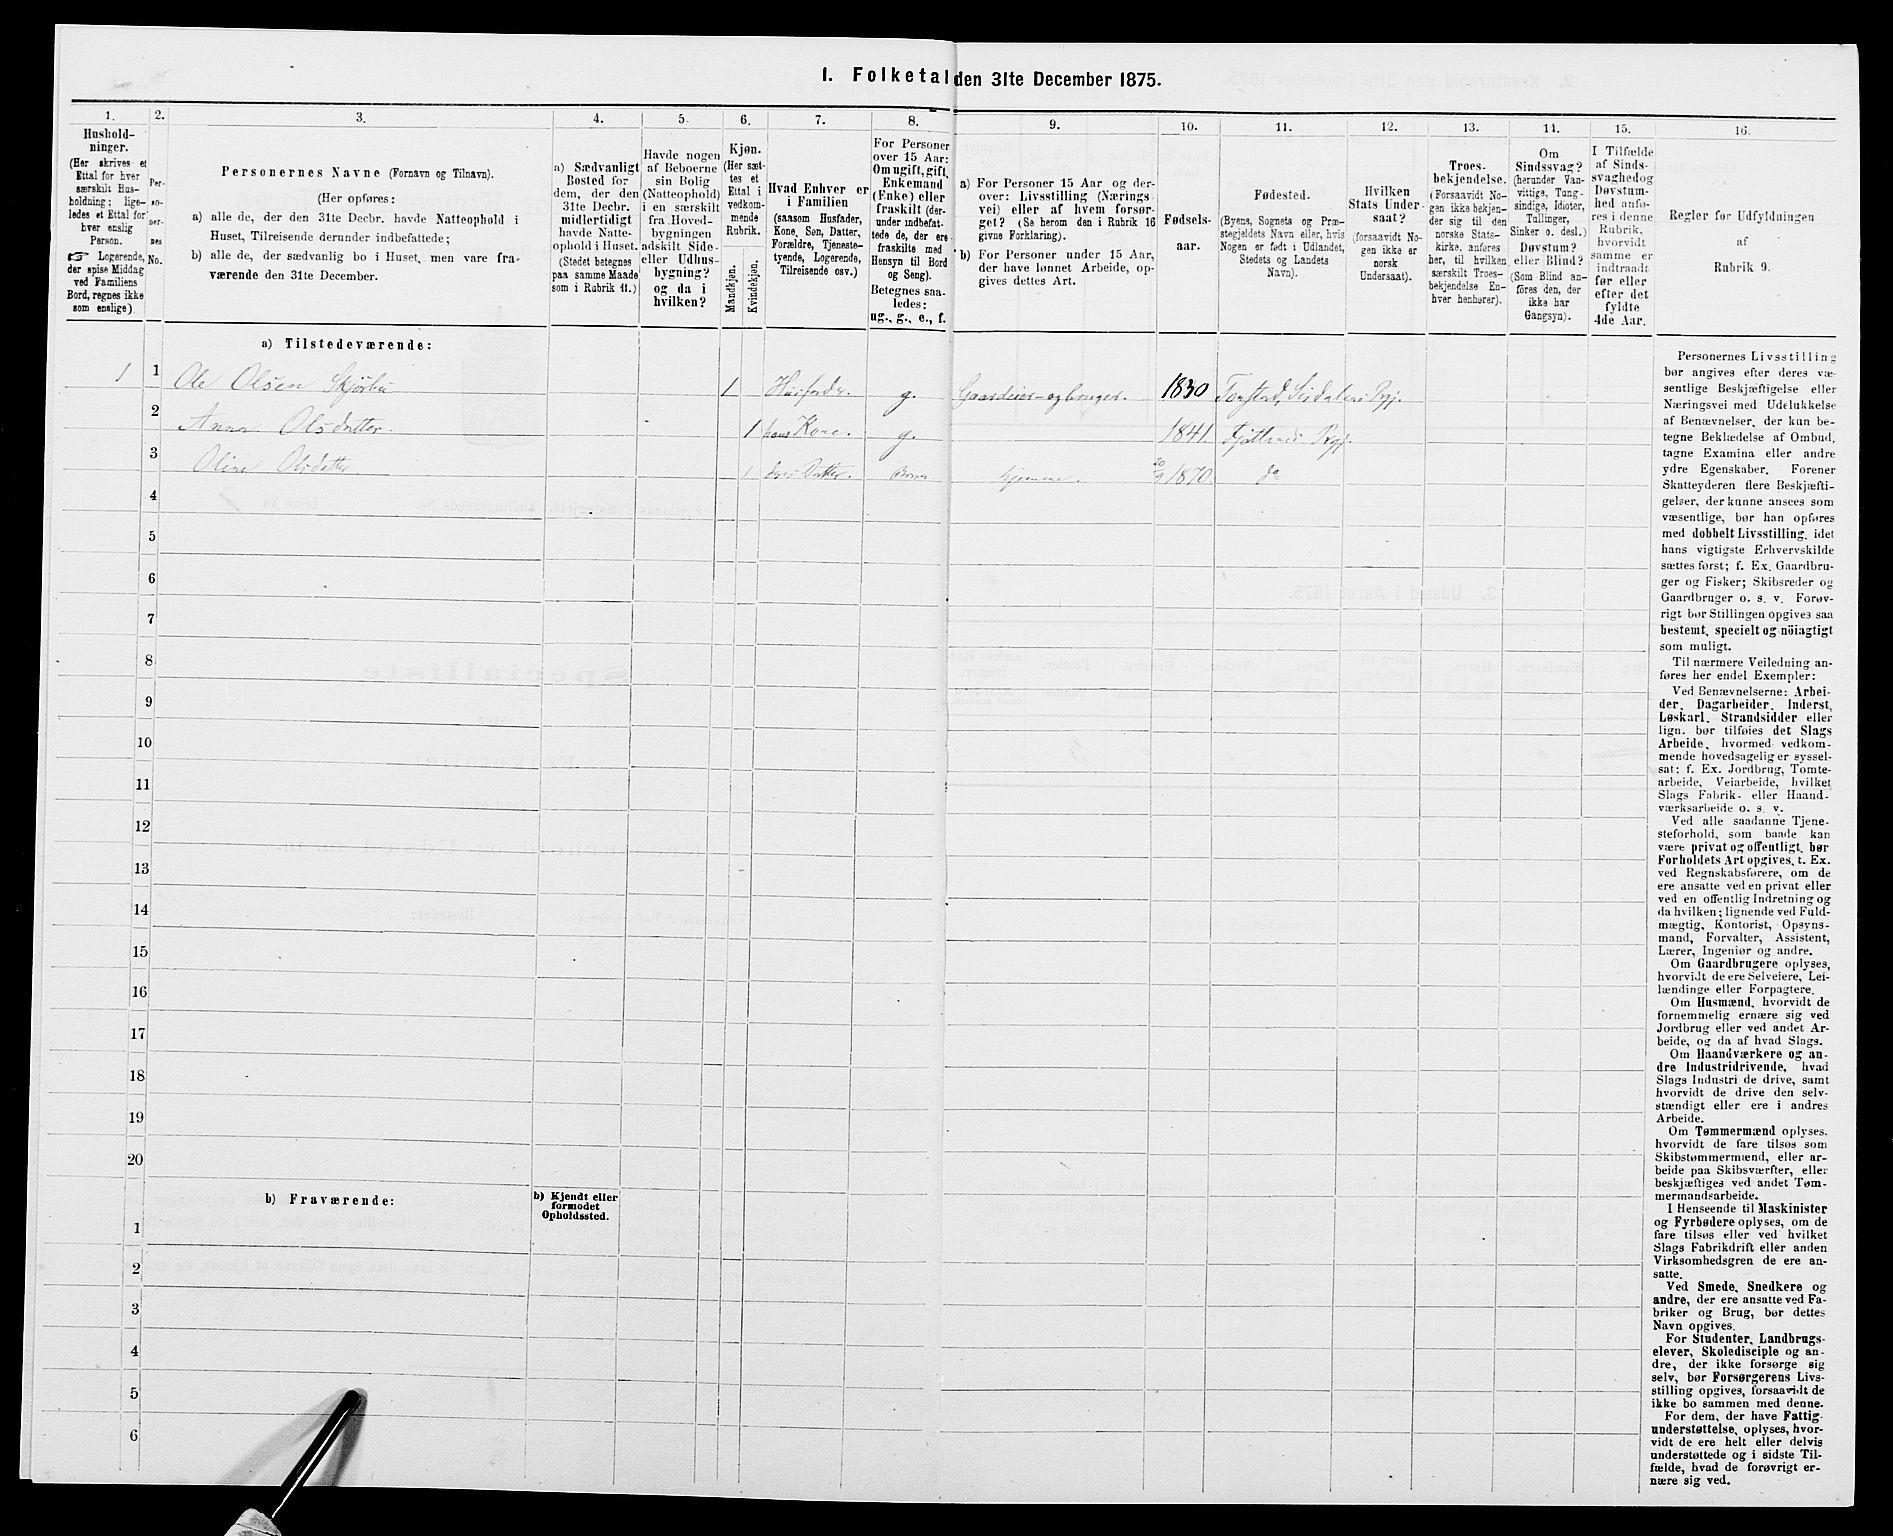 I. Folketal den 31te December 1875.
1.
Hushold-
ninger.
(Her skrives et
Ettal for hver
særskilt Hus-
holdning; lige-
ledes et Ettal for
hver enslig
Person.
☞ Logerende,
der spise Middag
ved Familiens
Bord, regnes ikke
som enslige).
2.
Per-
so-
ner-
nes
No.
3.
Personernes Navne (Fornavn og Tilnavn).
(Her opføres:
a) alle de, der den 31te Decbr. havde Natteophold i
Huset, Tilreisende derunder indbefattede;
b) alle de, der sædvanlig bo i Huset, men vare fra-
værende den 31te December.
4.
a) Sædvanligt
Bosted for
dem, der den
31te Decbr.
midlertidigt
havde Natte-
ophold i Huset.
(Stedet betegnes
paa samme Maade
som i Rubrik 11.)
5.
Havde nogen
af Beboerne
sin Bolig
(Natteophold)
i en særskilt
fra Hoved-
bygningen
adskilt Side-
eller Udhus-
bygning?
og da i
hvilken?
6.
Kjøn.
(Her sæt-
tes et
Ettal i
vedkom-
mende
Rubrik.
Mandkjøn.
Kvindekjøn.
7.
Hvad Enhver er
i Familien
(saasom Husfader,
Kone, Søn, Datter,
Forældre, Tjeneste-
tyende, Logerende,
Tilreisende osv.)
8.
For Personer
over 15 Aar:
Om ugift, gift,
Enkemand
(Enke) eller
fraskilt (der-
under indbefat-
tede de, der ere
fraskilte med
Hensyn til Bord
og Seng).
Betegnes saa-
ledes:
ug., g., e., f.
9.
a) For Personer 15 Aar og der-
over: Livsstilling (Nærings-
vei) eller af hvem forsør-
get? (Se herom den i Rubrik 16
givne Forklaring).
b) For Personer under 15 Aar,
der have lønnet Arbeide, op-
gives dettes Art.
10.
Fødsels-
aar.
11.
Fødested.
(Byens, Sognets og Præ-
stegjeldets Navn eller, hvis
Nogen er født i Udlandet,
Stedets og Landets
Navn).
12.
Hvilken
Stats Under-
saat?
(forsaavidt No-
gen ikke er
norsk
Undersaat).
13.
Troes-
bekjendelse.
(Forsaavidt No-
gen ikke bekjen-
der sig til den
norske Stats-
kirke, anføres
her, til hvilken
særskilt Troes-
bekjendelse En-
hver henhører).
14.
Om
Sindssvag?
(herunder Van-
vittige, Tung-
sindige, Idioter,
Tullinger,
Sinker o. desl.)
Døvstum?
eller Blind?
(Som Blind an-
føres den, der
ikke har
Gangsyn).
15.
I Tilfælde
af Sinds-
svaghed og
Døvstum-
hed anfø-
res i denne
Rubrik,
hvorvidt
samme er
indtraadt
før eller
efter det
fyldte
4de Aar.
16.
Regler for Udfyldningen
af
Rubrik 9.
a) Tilstedeværende:
1 1 Ole Olsen Skjørbu 1 g. Gaardeier og bruger. 1830 Tonstad, Sirdalens Prgj.
2 Anna Olsdatter. 1 hans Kone. g. 1841. Prgj.
3 Oline Olsdatter 1 deres Datter. 20/9 1870. do
4
5
6
7
8
9
10
11
12
13
14
15
16
17
18
19
20
b) Fraværende:
b) Kjendt eller
formodet
Opholdssted.
1
2
3
4
5
6
Personernes Livsstilling
bør angives efter deres væ-
sentlige Beskjæftigelse eller
Næringsvei med Udelukkelse
af Benævnelser, der kun be-
tegne Beklædelse af Ombud,
tagne Examina eller andre
ydre Egenskaber. Forener
Skatteyderen flere Beskjæfti-
gelser, der kunne ansees som
væsentlige, bør han opføres
med dobbelt Livsstilling, idet
hans vigtigste Erhvervskilde
sættes først; f. Ex. Gaardbru-
ger og Fisker; Skibsreder og
Gaardbruger o. s. v. Forøv-
rigt bør Stillingen opgives saa
bestemt, specielt og nöiagtigt
som muligt.
Til nærmere Veiledning an-
føres her endel Exempler:
Ved Benævnelserne: Arbei-
der, Dagarbeider, Inderst,
Løskarl, Strandsidder eller
lign. bør tilføies det Slags
Arbeide, hvormed vedkom-
mende hovedsagelig er syssel-
sat; f. Ex. Jordbrug, Tomte-
arbeide, Veiarbeide, hvilket
Slags Fabrik- eller Haand-
værksarbeide o. s. v.
Ved alle saadanne Tjene-
steforhold, som baade kan
være privat og offentligt, bør
Forholdets Art opgives, t. Ex.
ved Regnskabsførere, om de
ere ansatte ved en privat eller
ved en offentlig Indretning og
da hvilken; lignende ved Fuld-
mægtig, Kontorist, Opsyns-
mand, Forvalter, Assistent,
Lærer, Ingeniør og andre.
Om Gaardbrugere oplyses,
hvorvidt de ere Selveiere, Lei-
lændinge eller Forpagtere.
Om Husmænd, hvorvidt de
fornemmelig ernære sig ved
Jordbrug eller ved andet Ar-
beide, og da af hvad Slags.
Om Haandværkere og an-
dre Industridrivende, hvad
Slags Industri de drive, samt
hvorvidt de drive den selv-
stændigt eller ere i andres
Arbeide.
Om Tømmermænd oplyses,
hvorvidt de fare tilsøs som
Skibstømmermænd, eller ar-
beide paa Skibsværfter, eller
beskjæftiges ved andet Tøm-
mermandsarbeide.
I Henseende til Maskinister
og Fyrbødere oplyses, om de
fare tilsøs eller ved hvilket
Slags Fabrikdrift eller anden
Virksomhedsgren de ere an-
satte.
Ved Smede, Snedkere og
andre, der ere ansatte ved Fa-
briker og Brug, bør dettes
Navn opgives.
For Studenter, Landbrugs-
elever, Skoledisciple og an-
dre, der ikke forsørge sig
selv, bør Forsørgerens Livs-
stilling opgives, forsaavidt de
ikke bo sammen med denne.
For dem, der have Fattig-
understøttelse, oplyses, hvor-
vidt de ere helt eller delvis
understøttede og i sidste Til-
fælde, hvad de forøvrigt er-
nære sig ved.